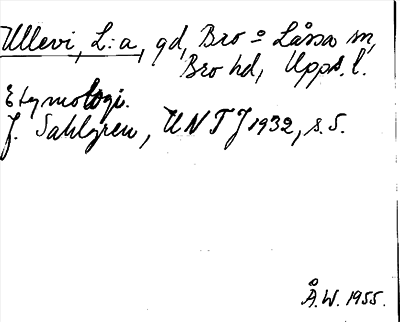 Ullevi, L:a, gd, Bro o Låssa sn,
Bro hd, Uppl. l.
Etymologi.
J. Sahlgren, UNTJ 1932, s. 5.
Å.W. 1955.